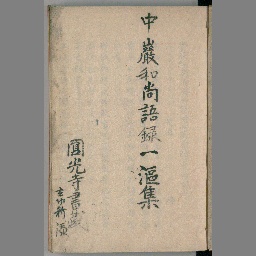 中巖和尚語録一漚集
圓光寺書